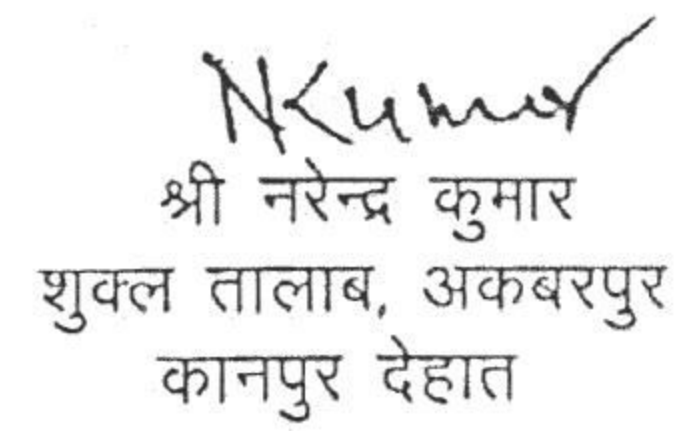 NKumar
श्री नरेन्द्र कुमार
शुक्ल तालाब, अकबरपुर
कानपुर देहात